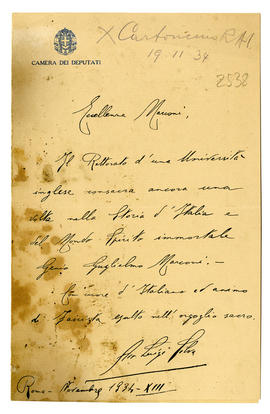 X Cartoncino R.A.I
19 11 34
CAMERA DEI DEPUTATI
2532
Eccellenza Marconi,
Il Rettorato d'una Università
inglese consacra ancora una
volta nella Storia d'Italia e
del Mondo Spirito immortale
Genio Guglielmo Marconi. -
Con cuore d'Italiano ed animo
di Fascista esulto nell'orgoglio sacro.
On. Luigi
Roma - Novembre 1934 - XIII